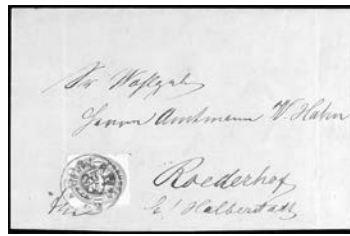 Sr Wohlgeb
Herrn Amtmann W. Hahn
Roederhof
b/ Halberstadt